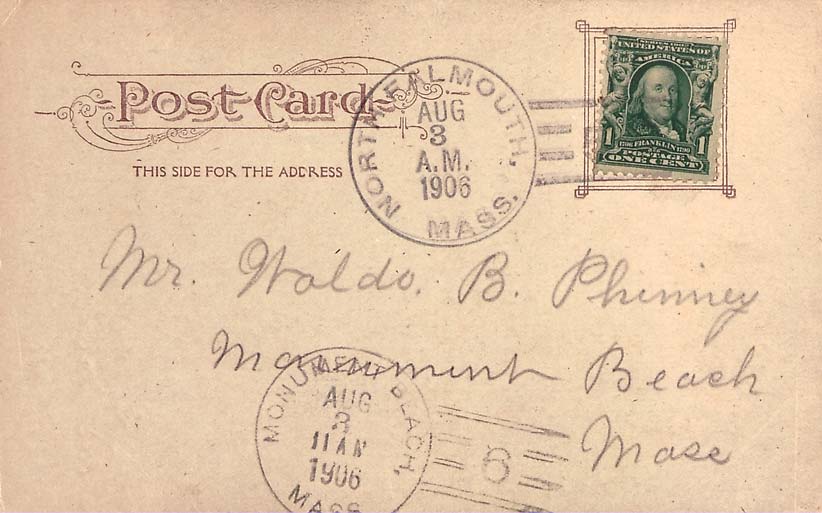 Post Card
THIS SIDE FOR THE ADDRESS
NORTH FALMOUTH, MASS.
AUG
3
A.M.
1906
SERIES 1902
UNITED STATES OF
AMERICA
1
1706 FRANKLIN 1790
POSTAGE
ONE CENT
Mr. Waldo. B. Phinney
Monument Beach
Mass
MONUMENT BEACH, MASS
AUG
3
11 AM
1906
6